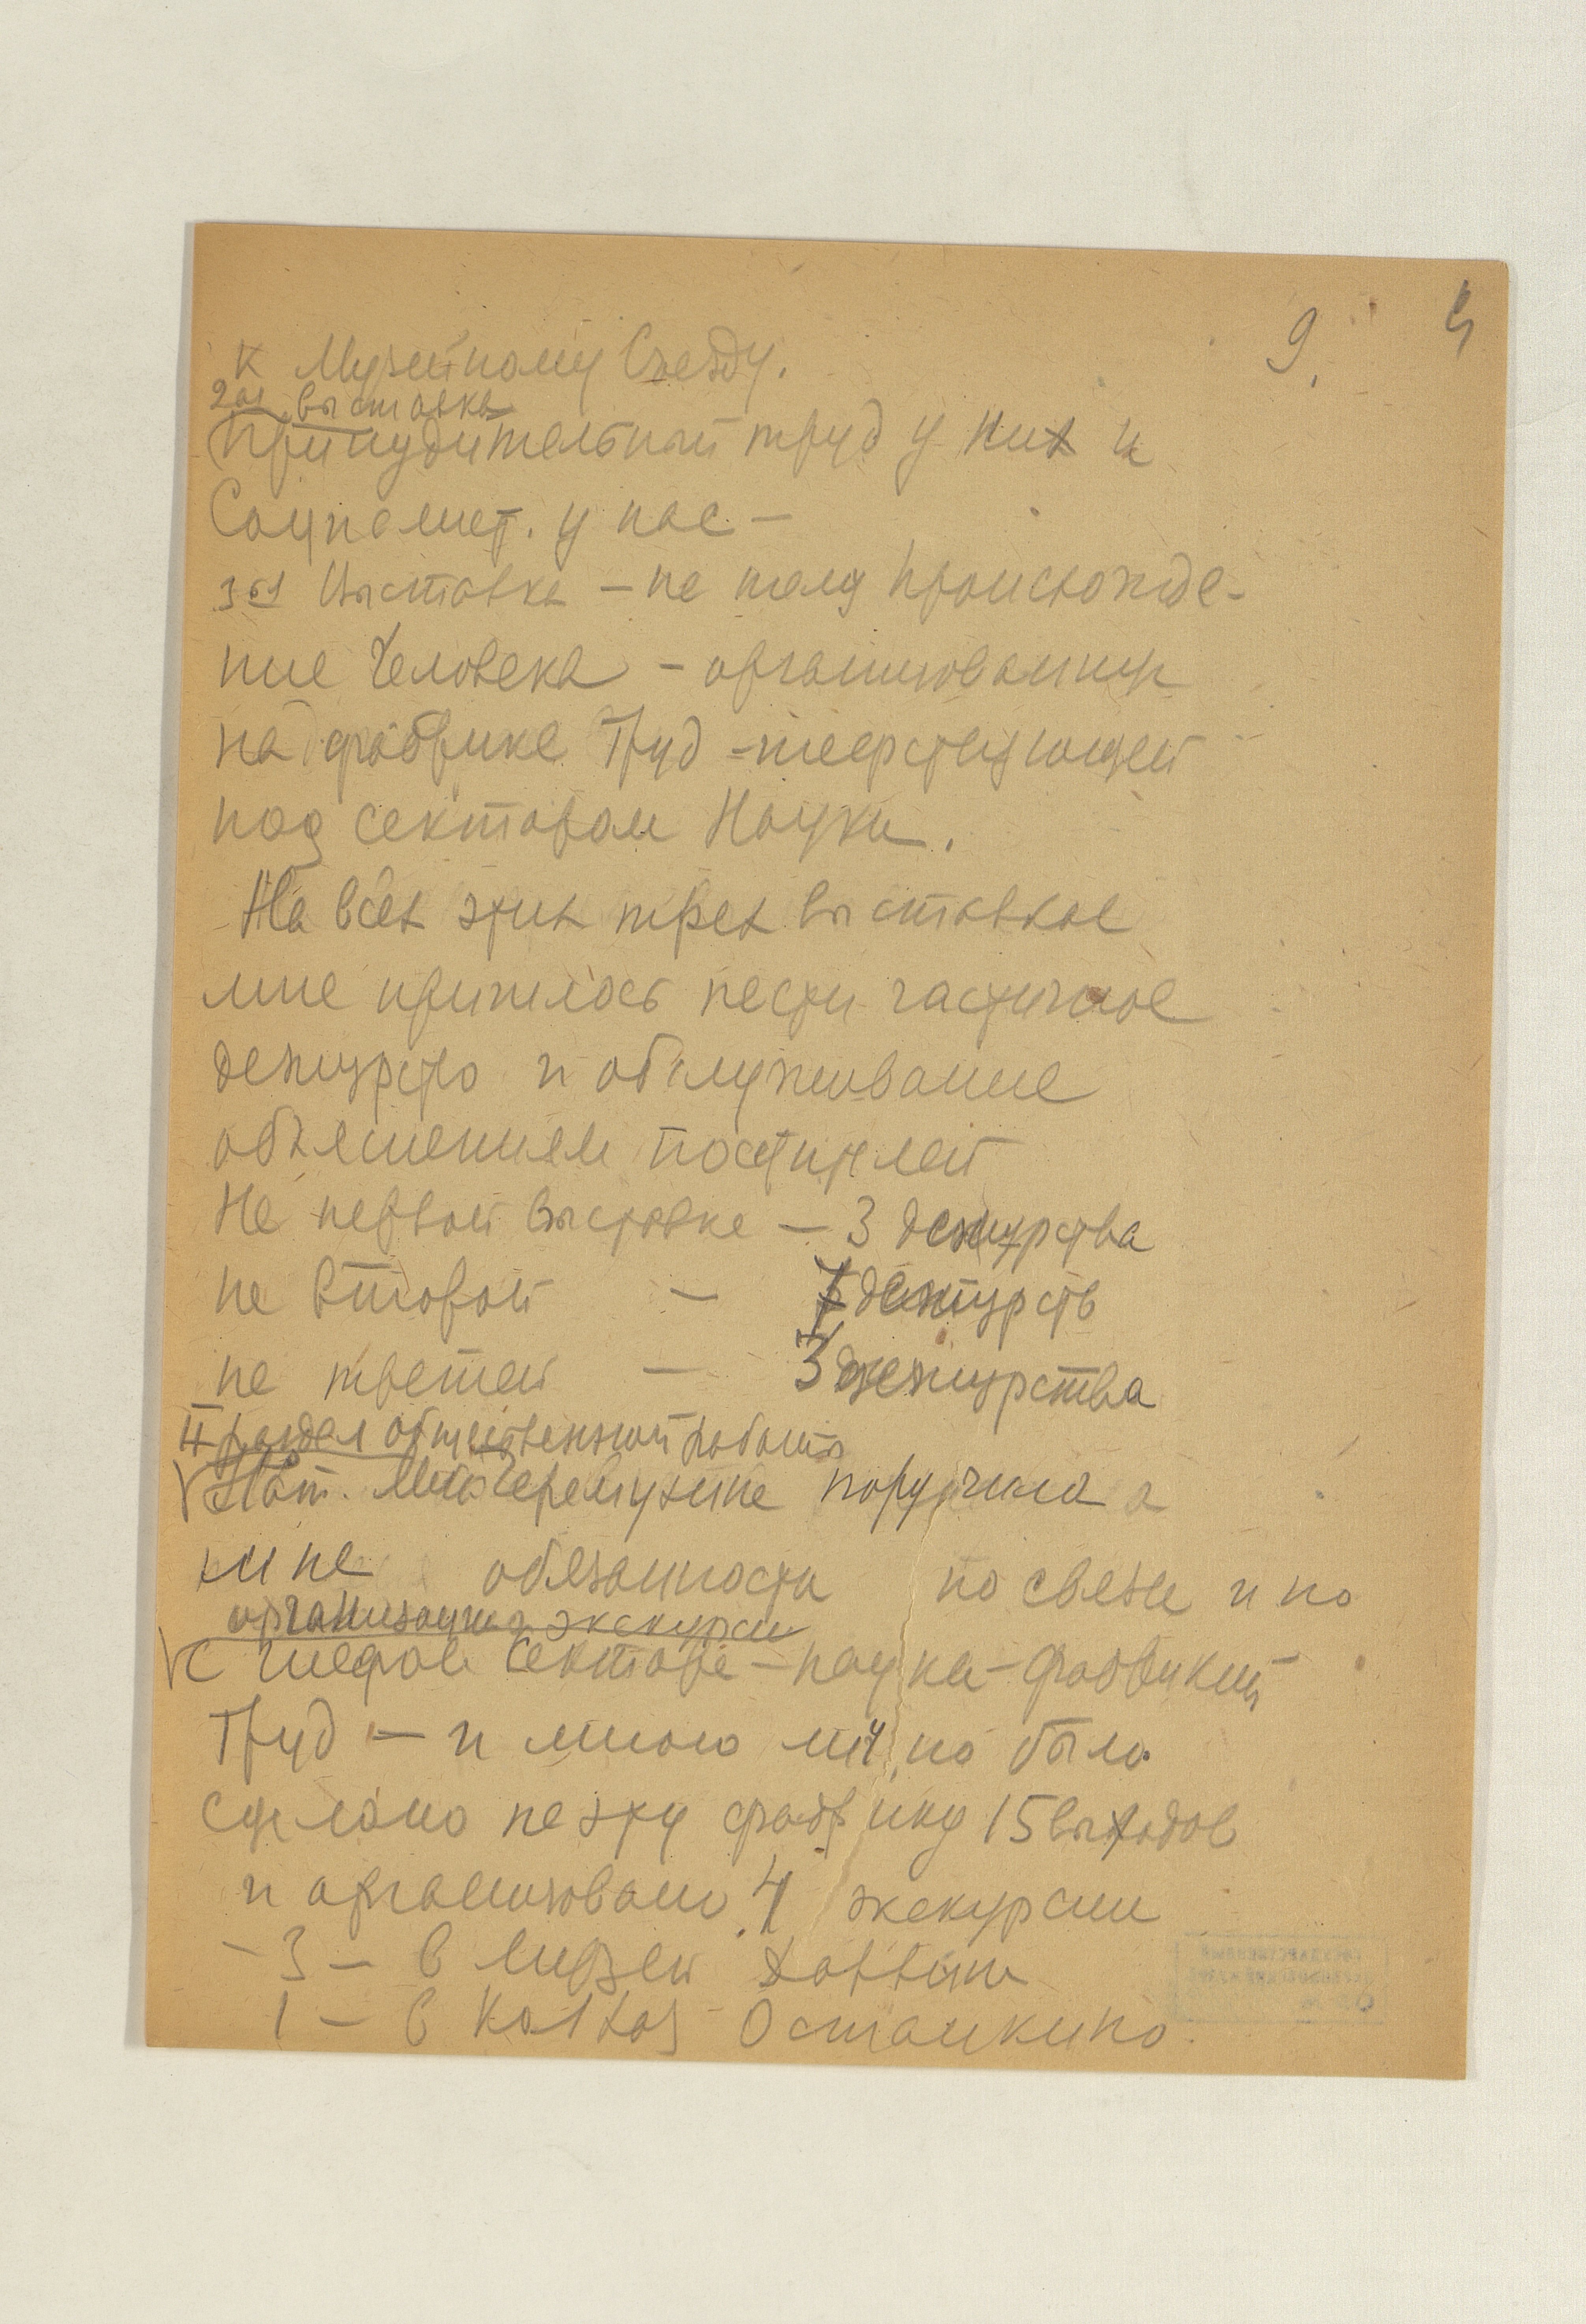 9.
к Музейному Съезду.
2ая выставка
Принудительный труд у них и
Соцпамят. у нас –
3ья Выставка – на тему Происхожде-
ние Человека – организованную
на фабрике Труд – шефствующей
над сектором Науки.
На всех этих трех выставках
мне пришлось нести частичное
дежурство и обслуживание
объяснением посетителей
На первой выставке – 3 дежурства
на второй – 7 дежурств
на третей – 3 дежурства
II раздел общественной работы
Нат. Мих. Черемухина поручила
мне обязанности по связи и по
организации экскурсии
с шефом сектора – науки – фабрикой
Труд – и мною лично было
сделано на эту фабрику 15 выходов
и организовано 4 экскурсии
– 3 – в музей
1 – в Колхоз Останкино